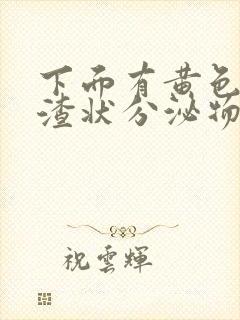 下面有黄色
渣状分泌物
祝雲輝